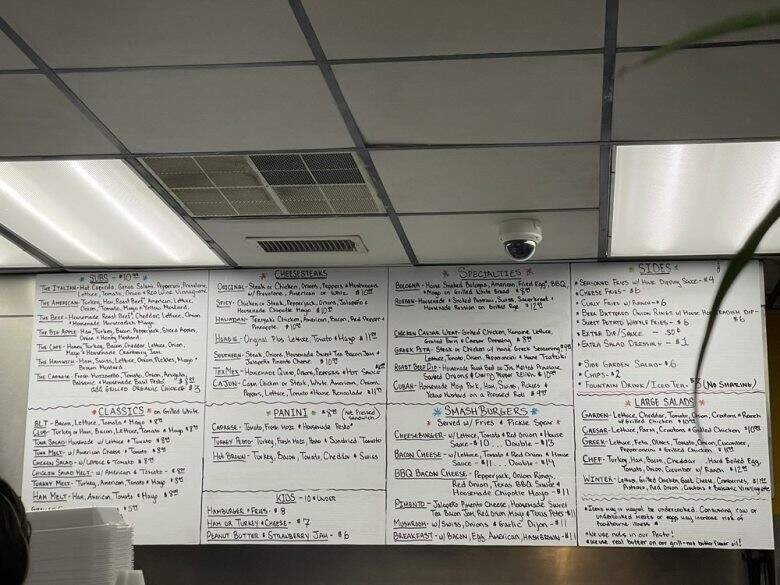 SUBS - $10.99
The Italian - Hot Capicola, Genoa Salami, Pepperoni, Provolone,
Lettuce, Tomato, Onion & Red Wine Vinaigrette
The American - Turkey, Ham, Roast Beef, American, Lettuce,
Onion, Tomato, Mayo & Yellow Mustard.
The Beef - Homemade Roast Beef, Cheddar, Lettuce, Onion
Homemade Horseradish Mayo.
The Big Apple - Ham, Turkey, Bacon, Pepperjack, Sliced Apples,
Onion & Honey Mustard.
The Cape - Ham, Turkey, Bacon, Cheddar, Lettuce, Onion,
Mayo & Homemade Cranberry Jam.
The Hammer - Ham, Swiss, Lettuce, Onion, Pickles, Mayo &
Brown Mustard.
The Caprese - Fresh Mozzarella, Tomato, Onion, Arugula,
Balsamic & Homemade Basil Pesto
add Grilled Organic Chicken $3
CLASSICS on Grilled White
BLT - Bacon, Lettuce, Tomato & Mayo
Club - Turkey or Ham, Bacon, Lettuce, Tomato & Mayo
Tuna Salad - Housemade w/ Lettuce & Tomato
Tuna Melt - w/ American Cheese & Tomato
Chicken Salad - w/ Lettuce & Tomato
Chicken Salad Melt - w/ American & Tomato
Turkey Melt - Turkey, American, Tomato & Mayo
Ham Melt - Ham, American, Tomato & Mayo
CHEESESTEAKS
Original - Steak or Chicken, Onions, Peppers & Mushrooms
w/ Provolone, American or Whiz
Spicy - Chicken or Steak, Pepperjack, Onions, Jalapeño &
Homemade Chipotle Mayo
Hawaiian - Teriyaki Chicken, American, Bacon, Red Pepper &
Pineapple
Hoagie - Original Plus Lettuce, Tomato & Mayo
Southern - Steak, Onions, Homemade Sweet Tea Bacon Jam &
Jalapeño Pimento Cheese
TexMex - Homemade Queso, Onions, Peppers & Hot Sauce
Cajun - Cajun Chicken or Steak, White American, Onions,
Peppers, Lettuce, Tomato & House Remoulade
PANINI $8.99 (Not Pressed Sandwich)
Caprase - Tomato, Fresh Mozz & Homemade Pesto
Turkey Pesto - Turkey, Fresh Mozz, Pesto & Sundried Tomato
Hot Brown - Turkey, Bacon, Tomato, Cheddar & Swiss
KIDS - 10 & Under
Hamburger & Fries - 8
Ham or Turkey & Cheese - $7
Peanut Butter & Strawberry Jam - $6
SPECIALTIES
Bologna - House Smoked Bologna, American, Fried Egg, BBQ,
& Mayo on Grilled White Bread
Reuben - Housemade & Smoked Pastrami, Swiss, Sauerkraut &
Homemade Russian on Grilled Rye
Chicken Caesar Wrap - Grilled Chicken, Romaine Lettuce,
Grated Parm & Caesar Dressing
Greek Pita - Steak or Chicken w/ Hand Greek Seasoning
Lettuce, Tomato, Onion, Pepperoncini & House Tzatziki
Roast Beef Dip - Homemade Roast Beef Au Jus, Melted Provolone
Sauteed Onions & Cherry Pepper Relish
Cuban - Homemade Mojo Pork, Ham, Swiss, Pickles &
Yellow Mustard on a Pressed Roll
SMASHBURGERS
Served w/ Fries & Pickle Spear
Cheeseburger - w/ Lettuce, Tomato & Red Onion & House
Sauce - $10... Double - $13
Bacon Cheese - w/ Lettuce, Tomato & Red Onion & House
Sauce - $11... Double - $14
BBQ Bacon Cheese - Pepperjack, Onion Rings,
Red Onion, Texas BBQ Sauce &
Homemade Chipotle Mayo - $11
Pimento - Jalapeño Pimento Cheese, Homemade Sweet
Tea Bacon Jam, Red Onion, Mayo & Texas Pete - $11
Mushroom - w/ Swiss, Onions & Garlic Dijon - $11
Breakfast - w/ Bacon, Egg, American, Hash Brown - $11
SIDES
Seasoned Fries w/ House Dipping Sauce - $4
Cheese Fries - $6
Curly Fries w/ Ranch - $6
Beer Battered Onion Rings w/ House Horseradish Dip -
$6
Sweet Potato Waffle Fries - $6
Extra Dip/Sauce - 50¢
Extra Salad Dressing - $1
Side Garden Salad - $6
Chips - $2
Fountain Drink / Iced Tea - $3 (No Sharing)
LARGE SALADS
Garden - Lettuce, Cheddar, Tomato, Onion, Croutons & Ranch
w/ Grilled Chicken
Caesar - Lettuce, Parm, Croutons & Grilled Chicken
Greek - Lettuce, Feta, Olives, Tomato, Onion, Cucumber,
Pepperoncini & Grilled Chicken
Chef - Turkey, Ham, Bacon, Cheddar, Hard Boiled Egg,
Tomato, Onion, Cucumber w/ Ranch
Winter - Lettuce, Grilled Chicken, Goat Cheese, Cranberries,
Pistachio, Red Onion, Croutons & Balsamic Vinaigrette
Items may or maynot be undercooked. Consuming raw or
undercooked meats or eggs may increase risk of
foodborne illness
We use nuts in our Pesto!
We use real butter on our grill - not butter flavor oil!